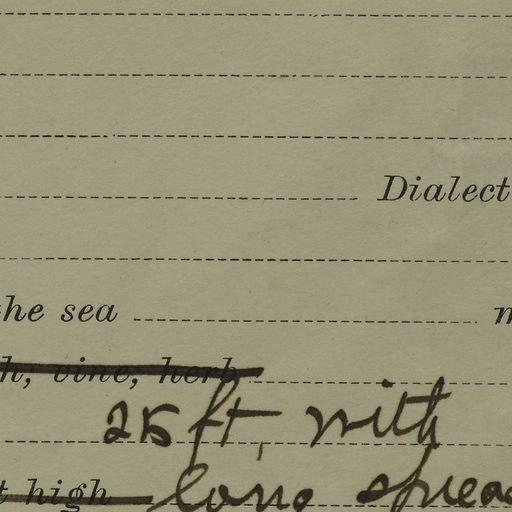 Dialect
the sea m
h, vine, herb
25 ft, with
t high long sprea